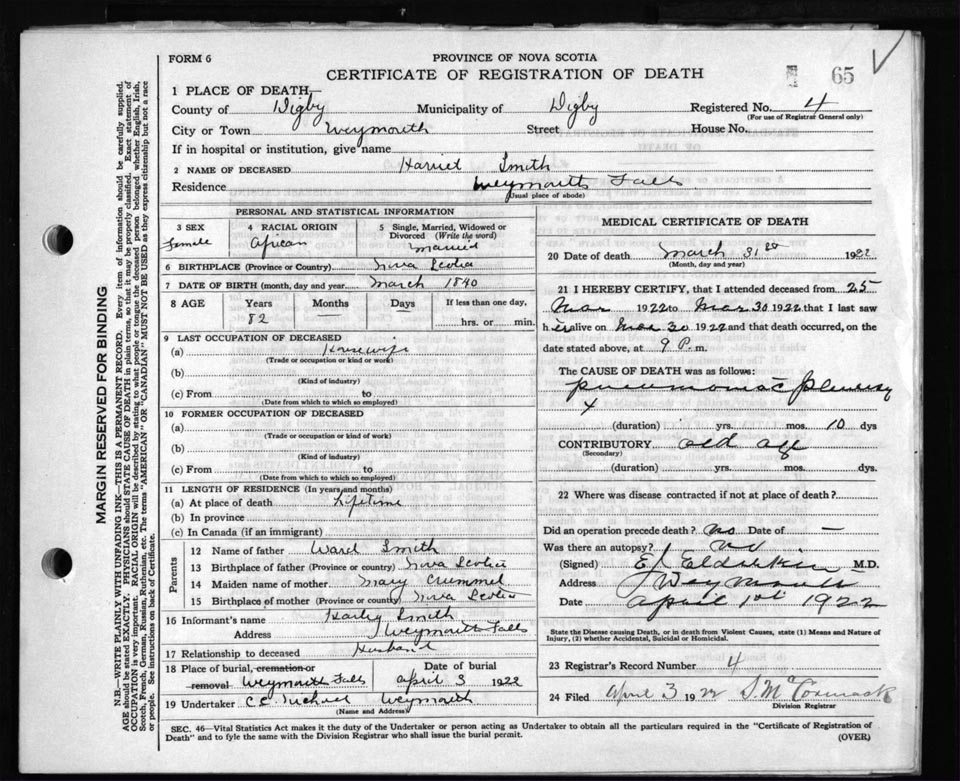 FORM 6
PROVINCE OF NOVA SCOTIA
CERTIFICATE OF REGISTRATION OF DEATH
65
1 PLACE OF DEATH
County of Digby Municipality of Digby Registered No. 4
(For use of Registrar General only)
City or Town Weymouth Street House No.
If in hospital or institution, give name
2 NAME OF DECEASED Harriet Smith
Residence Weymouth Falls
(Usual place of abode)
PERSONAL AND STATISTICAL INFORMATION
3 SEX 4 RACIAL ORIGIN 5 Single, Married, Widowed or Divorced (Write the word)
Female African Married
6 BIRTHPLACE (Province or Country) Nova Scotia
7 DATE OF BIRTH (month, day and year) March 1840
8 AGE Years Months Days If less than one day,
82 hrs. or min.
9 LAST OCCUPATION OF DECEASED
(a) Housewife
(Trade or occupation or kind of work)
(b)
(Kind of industry)
(c) From to
(Date from which to which so employed)
10 FORMER OCCUPATION OF DECEASED
(a)
(Trade or occupation or kind of work)
(b)
(Kind of industry)
(c) From to
(Date from which to which so employed)
11 LENGTH OF RESIDENCE (In years and months)
(a) At place of death Lifetime
(b) In province
(c) In Canada (if an immigrant)
Parents
12 Name of father Ward Smith
13 Birthplace of father (Province or country) Nova Scotia
14 Maiden name of mother Mary Crummel
15 Birthplace of mother (Province or country) Nova Scotia
16 Informant's name Smith
Address Weymouth Falls
17 Relationship to deceased Husband
18 Place of burial, cremation or removal Weymouth Falls Date of burial April 3 1922
19 Undertaker Weymouth
(Name and Address)
MEDICAL CERTIFICATE OF DEATH
20 Date of death March 31 1922
(Month, day and year)
21 I HEREBY CERTIFY, that I attended deceased from 25
Mar 1922 to Mar 30 1922 that I last saw
her alive on Mar 30 1922 and that death occurred, on the
date stated above, at 9 P. m.
The CAUSE OF DEATH was as follows:
Pleurisy
(duration) yrs. mos. 10 dys
CONTRIBUTORY old age
(Secondary)
(duration) yrs. mos. dys.
22 Where was disease contracted if not at place of death?
Did an operation precede death? No Date of —
Was there an autopsy? no
(Signed) M.D.
Address Weymouth
Date April 1st 1922
State the Disease causing Death, or in death from Violent Causes, state (1) Means and Nature of
Injury, (2) whether Accidental, Suicidal or Homicidal.
23 Registrar's Record Number 4
24 Filed April 3 1922 S. McCormack
Division Registrar
SEC. 46—Vital Statistics Act makes it the duty of the Undertaker or person acting as Undertaker to obtain all the particulars required in the "Certificate of Registration of
Death" and to fyle the same with the Division Registrar who shall issue the burial permit. (OVER)
MARGIN RESERVED FOR BINDING
N.B.—WRITE PLAINLY WITH UNFADING INK—THIS IS A PERMANENT RECORD. Every item of information should be carefully supplied.
AGE should be stated EXACTLY. PHYSICIANS should STATE CAUSE OF DEATH in plain terms, so that it may be properly classified. Exact statement of
OCCUPATION is very important. RACIAL ORIGIN will be described by stating to what people or tongue the deceased person belonged whether English, Irish,
Scotch, French, German, Russian, Ruthenian, etc. The terms "AMERICAN" or "CANADIAN" MUST NOT BE USED as they express citizenship but not a race
or people. See instructions on back of Certificate.